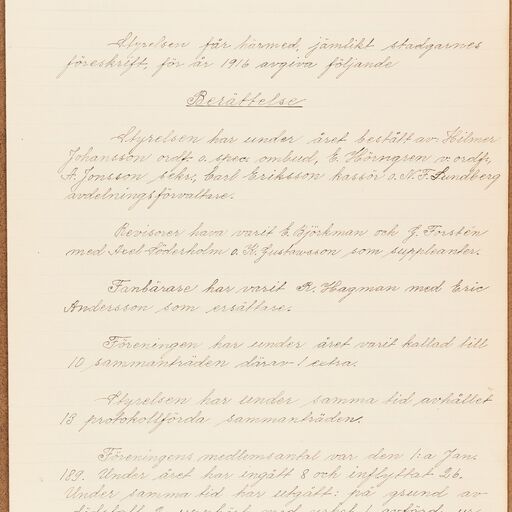 Styrelsen får härmed, jämlikt stadgarnes
föreskrift, för år 1916 avgiva följande
Berättelse
Styrelsen har under året bestått av Hilmer
Johansson ordf. o. spec. ombud, E. Hörngren v. ordf.,
A. Jonsson sekr., Carl Eriksson kassör o. N. F. Lundberg
avdelningsförvaltare.
Revisorer hava varit E. Björkman och J. Forstén
med Axel Söderholm o. K. Gustavsson som suppleanter.
Fanbärare har varit R. Hagman med Eric
Andersson som ersättare.
Föreningen har under året varit kallad till
10 sammanträden därav 1 extra.
Styrelsen har under samma tid avhållet
13 protokollförda sammanträden.
Föreningens medlemsantal var den 1:a Jan.
189. Under året har ingått 8 och inflyttat 26.
Under samma tid har utgått: på grund av